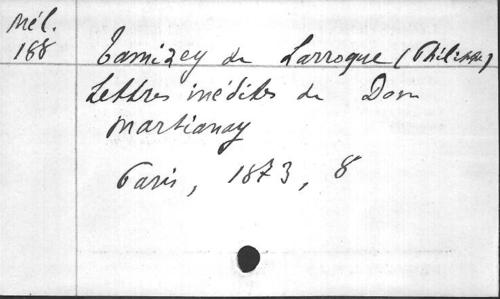 Mél.
188
Tamizey de Larroque (Philippe)
Lettres inédites de Dom
Martianay
Paris, 1873, 8